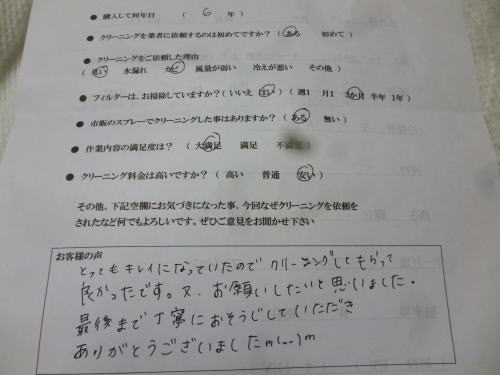 ● 購入して何年目　（　6　年）
● クリーニングを業者に依頼するのは初めてですか？（ ある　初めて ）
● クリーニングをご依頼した理由
（ 臭い　水漏れ　カビ　風量が弱い　冷えが悪い　その他　）
● フィルターは、お掃除していますか？（ いいえ　はい ）（ 週1　月1　3か月　半年　1年 ）
● 市販のスプレーでクリーニングした事はありますか？（ ある　無い ）
● 作業内容の満足度は？（ 大満足　満足　不満足 ）
● クリーニング料金は高いですか？（ 高い　普通　安い ）
その他、下記空欄にお気づきになった事、今回なぜクリーニングを依頼を
されたなど何でもよろしいです。ぜひご意見をお聞かせ下さい
お客様の声
とってもキレイになっていたので クリーニングしてもらって
良かったです。又、お願いしたいと思いました。
最後まで丁寧におそうじしていただき
ありがとうございましたm(__)m